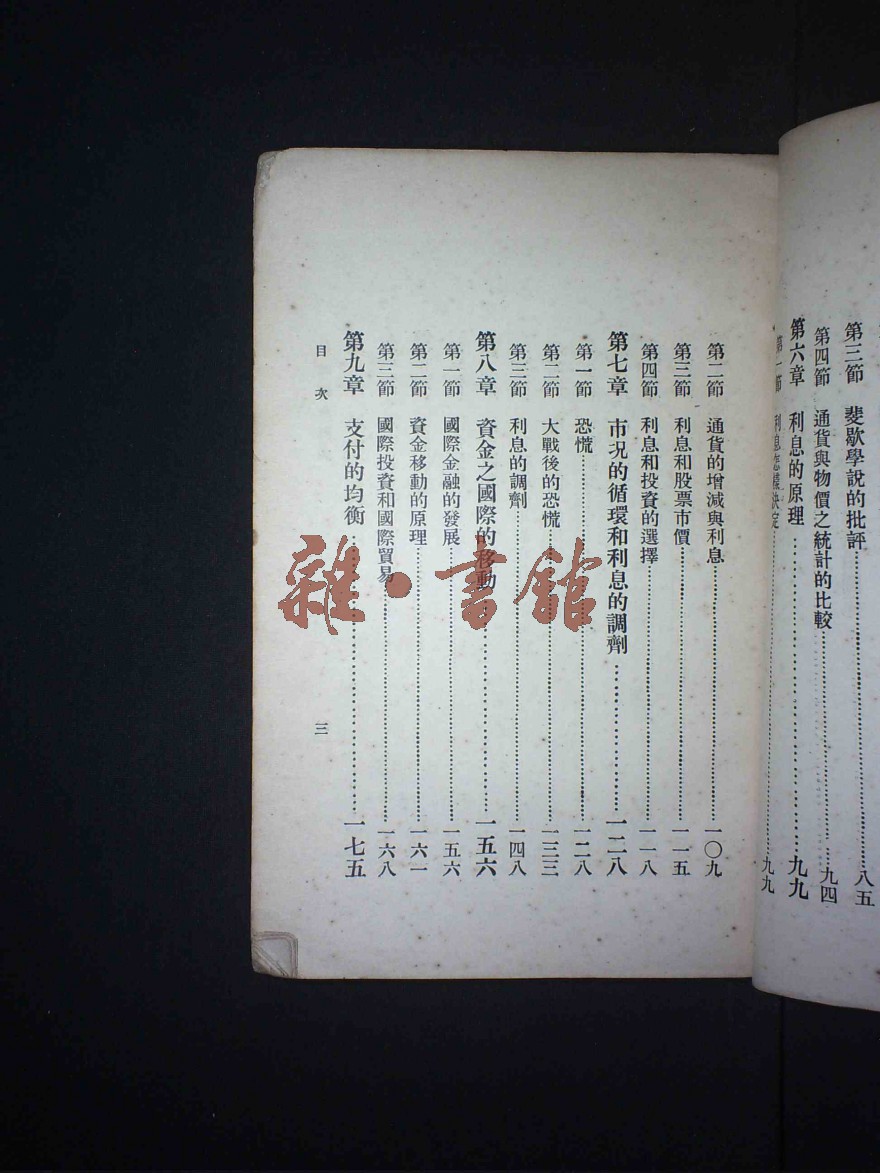 第三節　斐歇學說的批評……八五
第四節　通貨與物價之統計的比較……九四
第六章　利息的原理……九九
第一節　利息怎樣決定……九九
第二節　通貨的增減與利息……一〇九
第三節　利息和股票市價……一一五
第四節　利息和投資的選擇……一一八
第七章　市況的循環和利息的調劑……一二八
第一節　恐慌……一二八
第二節　大戰後的恐慌……一三三
第三節　利息的調劑……一四八
第八章　資金之國際的移動……一五六
第一節　國際金融的發展……一五六
第二節　資金移動的原理……一六一
第三節　國際投資和國際貿易……一六八
第九章　支付的均衡……一七五
目次　三
雜·書館